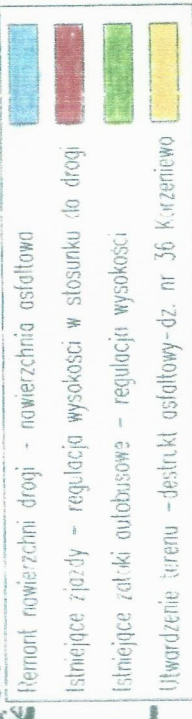 Remont nawierzchni drogi - nawierzchnia asfaltowa
Istniejące zjazdy - regulacja wysokości w stosunku do drogi
Istniejące zatoki autobusowe - regulacja wysokości
Utwardzenie terenu -destrukt asfaltowy-dz. nr 36 Korzeniewo